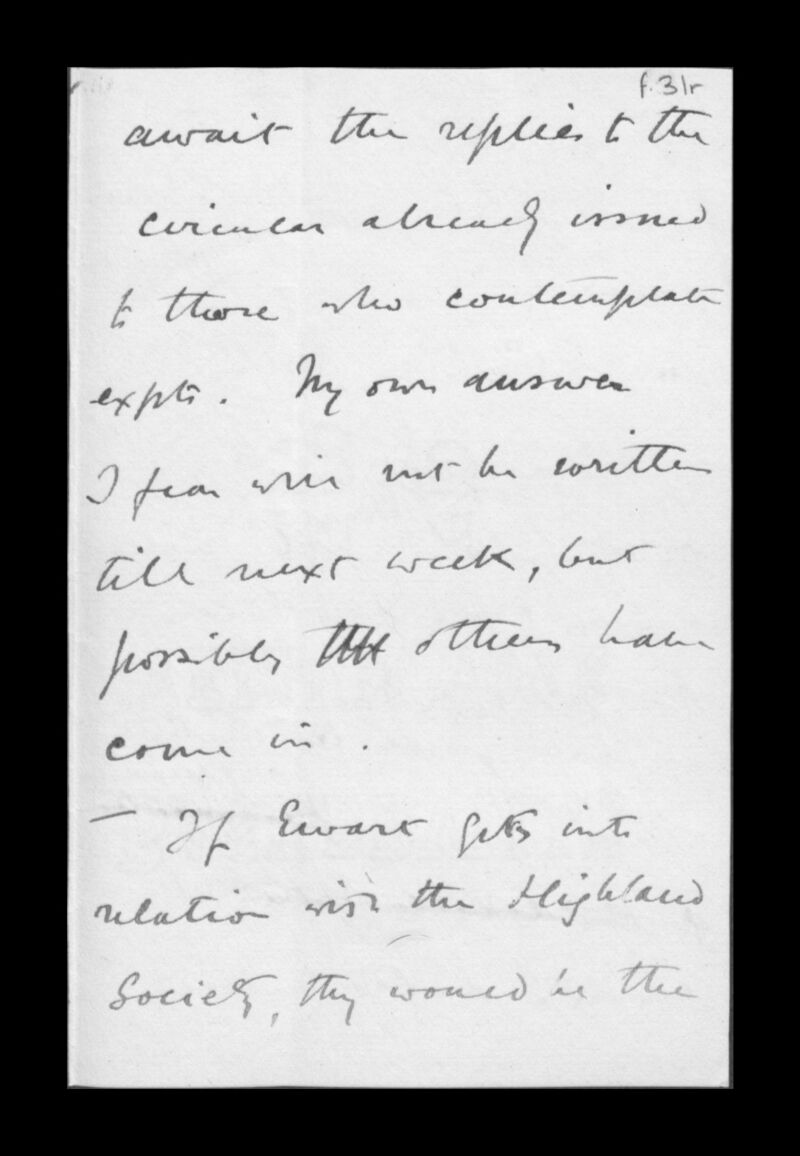 f.31r
await the replies to the
circular already issued
to those who contemplate
expts. My own answer
I fear will not be written
till next week, but
possibly others have
come in.
— If Ewart gets into
relation with the Highland
Society, they would be the